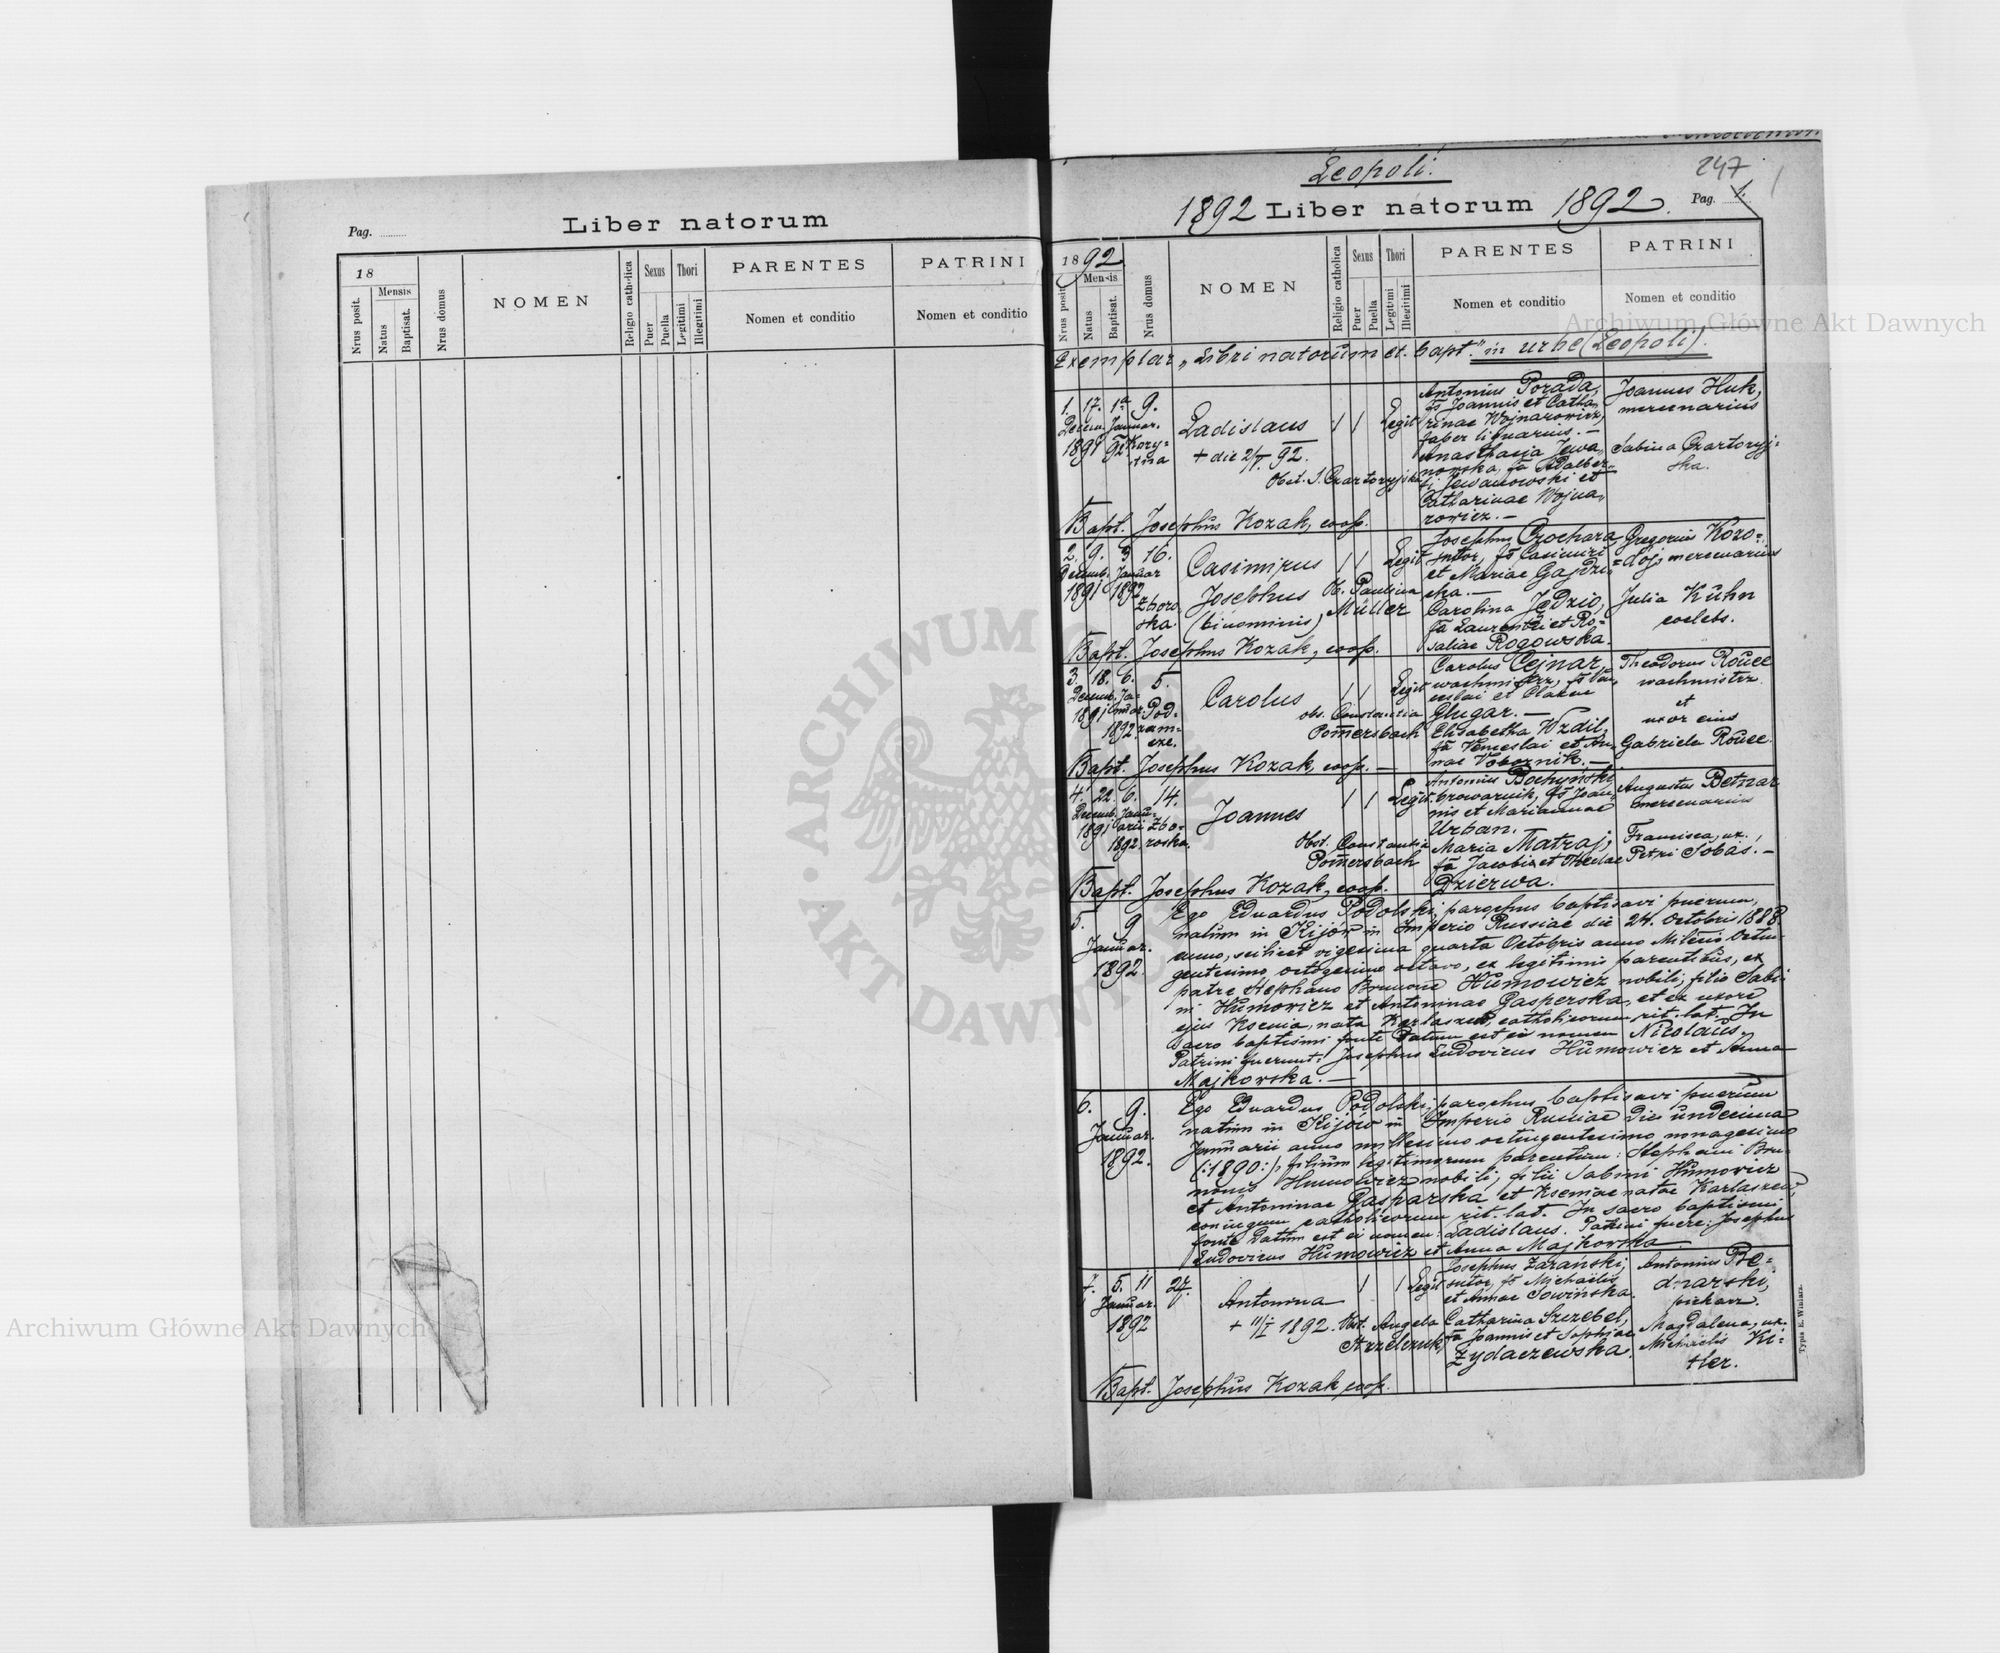 Pag.
Liber natorum
18
Nrus posit.
Mensis
Natus
Baptisat.
Nrus domus
NOMEN
Religio catholica
Sexus
Puer
Puella
Thori
Legitimi
Illegitimi
PARENTES
Nomen et conditio
PATRINI
Nomen et conditio
Leopoli.
247
1892 Liber natorum 1892.
Pag. 1.
1892
Nrus posit.
Mensis
Natus
Baptisat.
Nrus domus
NOMEN
Religio catholica
Sexus
Puer
Puella
Thori
Legitimi
Illegitimi
PARENTES
Nomen et conditio
PATRINI
Nomen et conditio
Exemplar „Libri natorum et bapt." in urbe (Leopoli).
1. 17. 1a 9.
Decem. Januar.
1891 92
Ladislaus
+ die 2/I. 92.
Obst. S. Czartoryjska
Legit
Antonius Porada,
fs Joannis et Catha-
rinae Wojnarowicz,
faber lignarius. —
Anastasia Jewa-
nowska, fa Adalber-
ti Jewanowski et
Catharinae Wojna-
rowicz. —
Joannes Huk,
mercenarius
Sabina Czartoryj-
ska.
Bapt. Josephus Kozak, coop.
2. 9. 3 16.
Decemb. Januar
1891 1892
Zboro
ska.
Casimirus
Josephus
(binominis)
O. Paulina
Müller
Legit
Josephus Czochara
sutor, fs Casimiri
et Mariae Gajdze-
cka. —
Carolina Jedzio,
fa Laurentii et Ro-
saliae Rogowska.
Gregorius Kozo-
dój, mercenarius
Julia Kühn
coelebs.
Bapt. Josephus Kozak, coop.
3. 18. 6. 5.
Decemb. Ja-
1891 nuar.
1892
Pod-
zam-
cze.
Carolus
obs. Constantia
Pomersbach
Legit
Carolus Cejnar,
wachmistrz, fs Ven-
ceslai et Clarae
Glugar. —
Elisabetha Wzdil,
fa Venceslai et An-
nae Vobornik. —
Theodorus Rouce
wachmistrz
et
uxor eius
Gabriela Rouce.
Bapt. Josephus Kozak, coop. —
4. 22. 6. 14.
Decemb. Janu-
1891 arii
1892.
Zbo-
roska.
Joannes
Obst. Constantia
Pomersbach
Legit.
Antonius Bochynski
browarnik, fs Joan-
nis et Mariannae
Urban.
Maria Matraj,
fa Jacobi et Theclae
Dzierwa.
Augustus Betnar
mercenarius
Francisca, ux.
Petri Sobas. —
Bapt. Josephus Kozak, coop.
5. 9
Januar.
1892.
Ego Eduardus Podolski, parochus baptisavi puerum,
natum in Kijów in Imperio Russiae die 24. Octobris 1888
anno, scilicet vigesima quarta Octobris anno Milesio Octin-
gentesimo octogesimo octavo, ex legitimis parentibus, ex
patre Stephano Brunone Humowicz nobili, filio Sabi-
ni Humowicz et Antoninae Gasperska, et ex uxore
ejus Ksenia, nata Karlaszew, catholicorum rit. lat. In
sacro baptismi fonte datum est ei nomen Nicolaus,
Patrini fuerunt: Josephus Ludovicus Humowicz et Anna
Majkowska. —
6. 9.
Januar.
1892.
Ego Eduardus Podolski, parochus baptisavi puerum
natum in Kijów in Imperio Russiae die undecima
Januarii anno millesimo octingentesimo nonagesimo
(:1890:), filium legitimorum parentum: Stephani Bru-
nonis Humowicz nobili, filii Sabini Humowicz
et Antoninae Gasparska et Kseniae natae Karlaszew,
coniugum catholicorum rit. lat. In sacro baptismi
fonte datum est ei nomen: Ladislaus. Patrini fuere: Josephus
Ludovicus Humowicz et Anna Majkowska
7. 5. 11 27.
Januar.
1892
Antonina
+ 11/I 1892.
Obst. Angela
Strzelczuk
Legit
Josephus Zaranski,
sutor, fs Michaelis
et Annae Sowinska.
Catharina Szczebel,
fa Joannis et Sophiae
Zydaczewska.
Antonius Be-
dnarski,
piekarz.
Magdalena, ux.
Michaelis Ki-
tler.
Bapt. Josephus Kozak coop.
Typis E. Winiarz.
Archiwum Główne Akt Dawnych
Archiwum Główne Akt Dawnych
ARCHIWUM GŁÓWNE AKT DAWNYCH